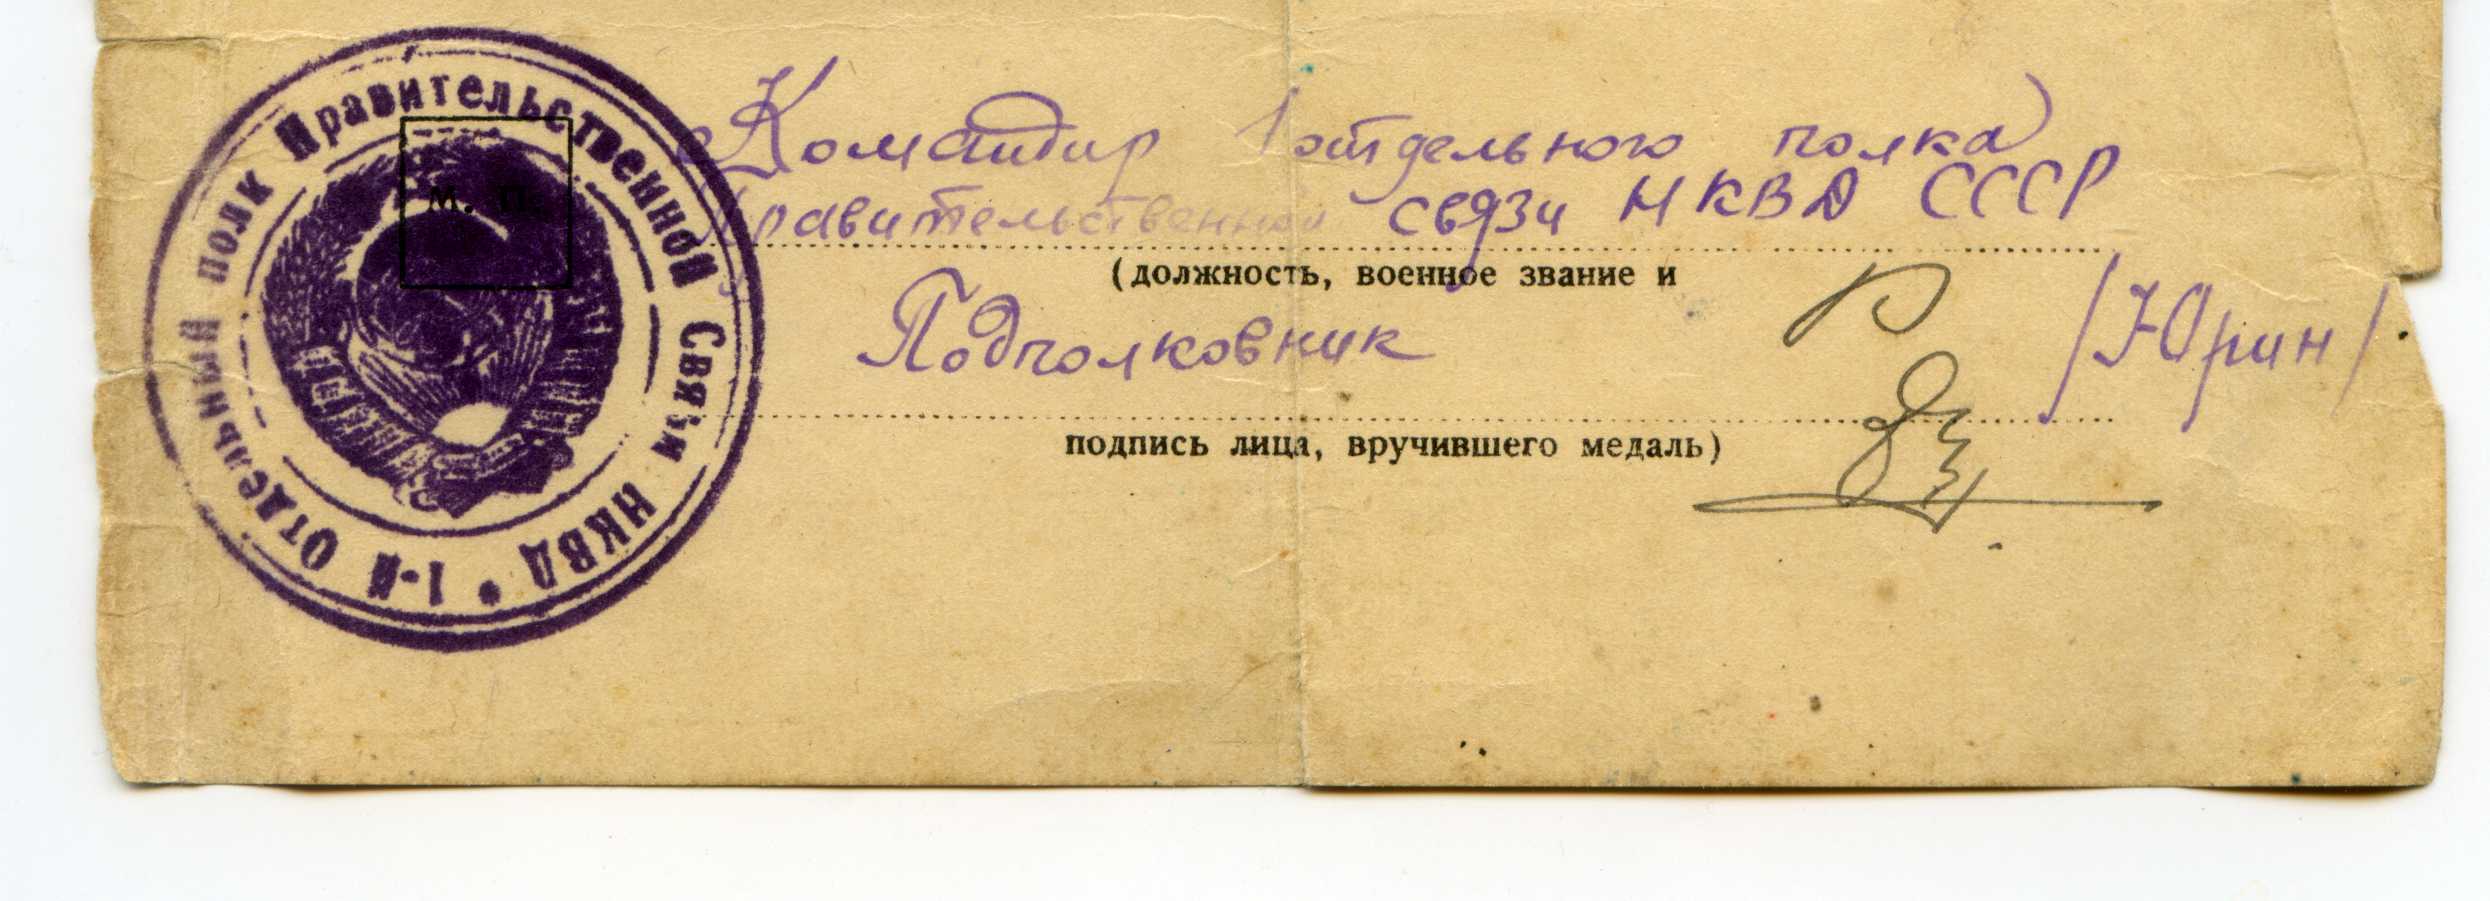 1-й Отдельный полк Правительственной Связи НКВД •
М. П.
Командир 1 отдельного полка
Правительственной связи НКВД СССР
(должность, военное звание и
Подполковник /Юрин/
подпись лица, вручившего медаль)